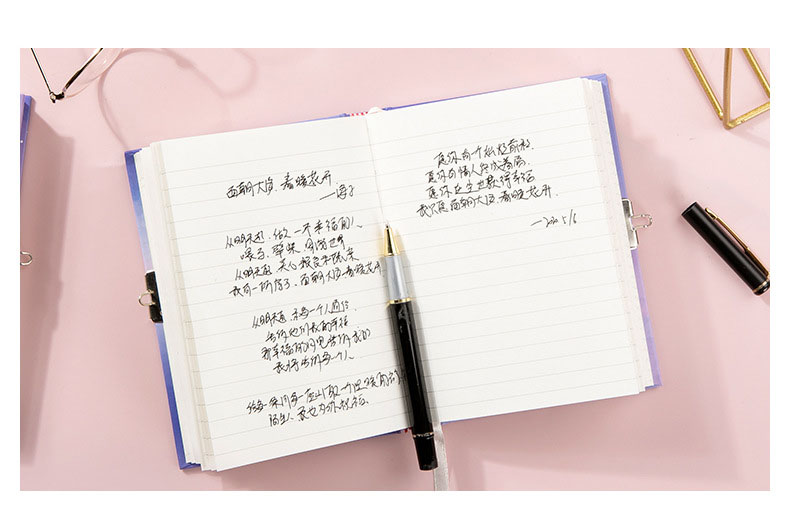 面朝大海,春暖花开
——海子
从明天起,做一个幸福的人
喂马,劈柴,周游世界
从明天起,关心粮食和蔬菜
我有一所房子,面朝大海,春暖花开
从明天起,和每一个人通信
告诉他们我的幸福
那幸福的闪电告诉我的
我将告诉每一个人
给每一条河每一座山取一个温暖的名
陌生人,我也为你祝福
愿你有一个灿烂前程
愿你有情人终成眷属
愿你在尘世获得幸福
我只愿面朝大海,春暖花开